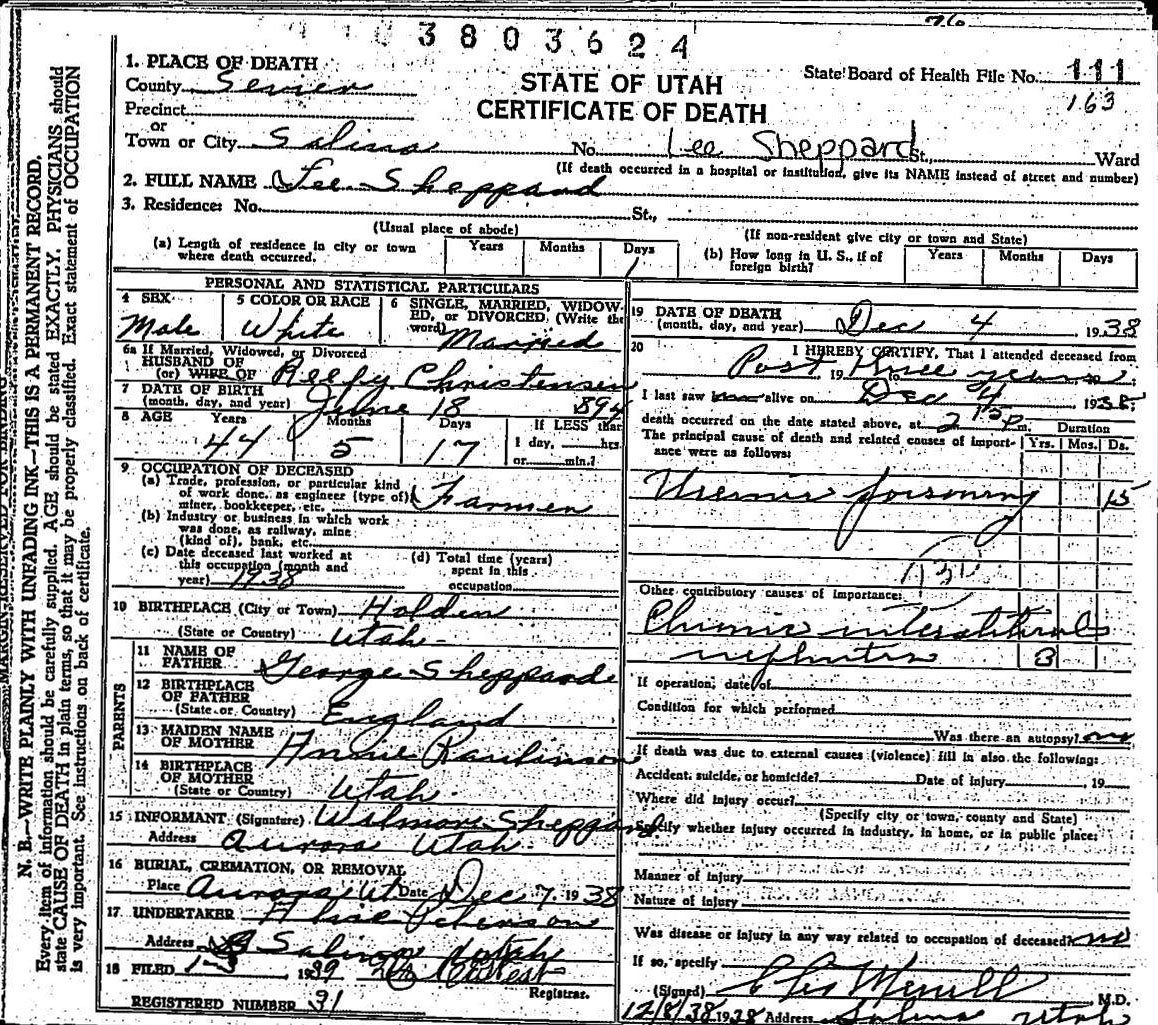 76
3803624
1. PLACE OF DEATH
STATE OF UTAH
CERTIFICATE OF DEATH
State Board of Health File No. 111
163
County Sevier
Precinct
or
Town or City Salina No. Lee Sheppard St., Ward
(If death occurred in a hospital or institution, give its NAME instead of street and number)
2. FULL NAME Lee Sheppard
3. Residence: No. St.,
(Usual place of abode) (If non-resident give city or town and State)
(a) Length of residence in city or town where death occurred. Years Months Days 1
(b) How long in U. S., if of foreign birth? Years Months Days
PERSONAL AND STATISTICAL PARTICULARS
4 SEX Male
5 COLOR OR RACE White
6 SINGLE, MARRIED, WIDOWED, or DIVORCED, (Write the word) Married
6a If Married, Widowed, or Divorced
HUSBAND OF
(or) WIFE OF Reefy Christensen
7 DATE OF BIRTH
(month, day, and year) June 18 894
8 AGE Years Months Days If LESS than
44 5 17 1 day, hrs.
or min.?
9 OCCUPATION OF DECEASED
(a) Trade, profession, or particular kind
of work done, as engineer (type of)
miner, bookkeeper, etc. Farmer
(b) Industry or business in which work
was done, as railway, mine
(kind of), bank, etc.
(c) Date deceased last worked at
this occupation (month and
year) 1938
(d) Total time (years)
spent in this
occupation
10 BIRTHPLACE (City or Town) Holden
(State or Country) Utah
PARENTS
11 NAME OF
FATHER George Sheppard
12 BIRTHPLACE
OF FATHER
(State or Country) England
13 MAIDEN NAME
OF MOTHER Annie Rawlinson
14 BIRTHPLACE
OF MOTHER
(State or Country) Utah
15 INFORMANT (Signature) Sheppard
Address Aurora Utah
16 BURIAL, CREMATION, OR REMOVAL
Place Aurora, Ut Date Dec 7, 1938
17 UNDERTAKER
Address Salina Utah
18 FILED 1-3 1939
Registrar.
REGISTERED NUMBER 31
19 DATE OF DEATH
(month, day, and year) Dec 4 1938
20 I HEREBY CERTIFY, That I attended deceased from
Past 19 three years
I last saw him alive on Dec 4 1938
death occurred on the date stated above, at 2 15 P m. Duration
The principal cause of death and related causes of importance were as follows: Yrs. Mos. Ds.
Uremic poisoning 15
Other contributory causes of importance:
Chronic interstitial
nephritis 3
If operation, date of
Condition for which performed
Was there an autopsy? no
If death was due to external causes (violence) fill in also the following:
Accident, suicide, or homicide? Date of injury , 19
Where did injury occur?
(Specify city or town, county and State)
Specify whether injury occurred in industry, in home, or in public place:
Manner of injury
Nature of injury
Was disease or injury in any way related to occupation of deceased? no
If so, specify
(Signed) M.D.
12/8/38 1938 Address Salina Utah
MARGIN RESERVED FOR BINDING
N. B.—WRITE PLAINLY WITH UNFADING INK—THIS IS A PERMANENT RECORD.
Every item of information should be carefully supplied. AGE should be stated EXACTLY. PHYSICIANS should
state CAUSE OF DEATH in plain terms, so that it may be properly classified. Exact statement of OCCUPATION
is very important. See instructions on back of certificate.